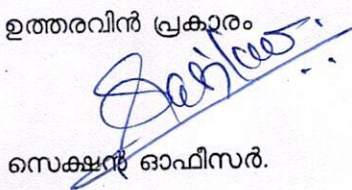 ഉത്തരവിൻ പ്രകാരം
സെക്ഷൻ ഓഫീസർ.